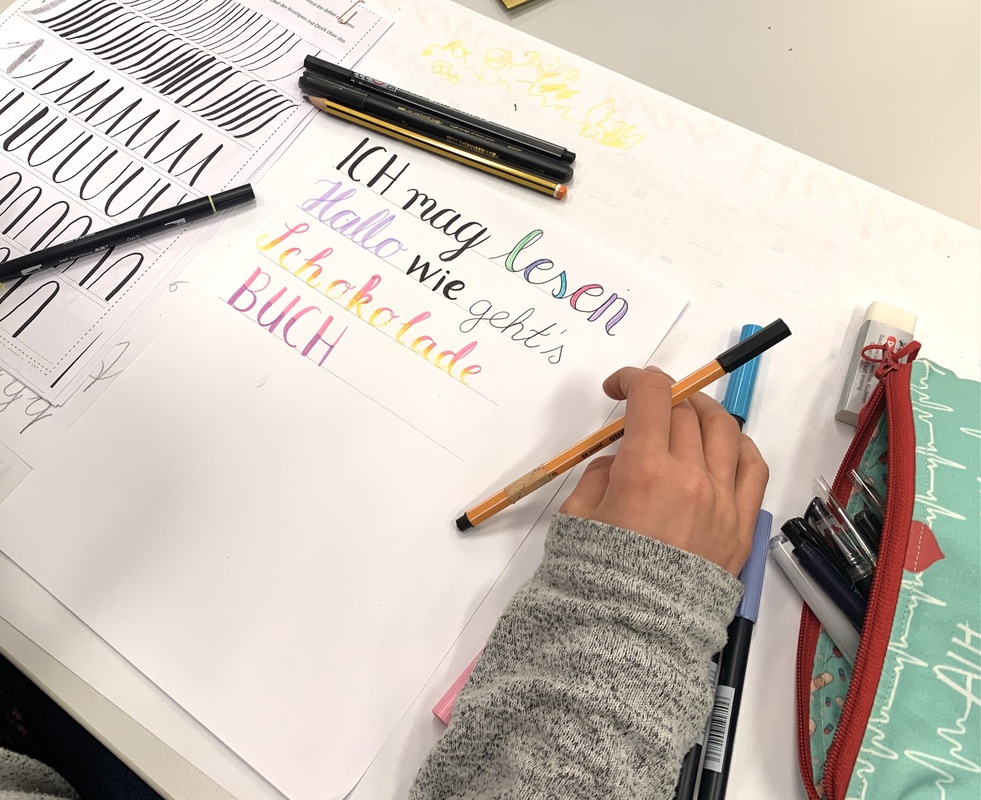 ICH mag lesen
Hallo wie geht's
Schokolade
BUCH